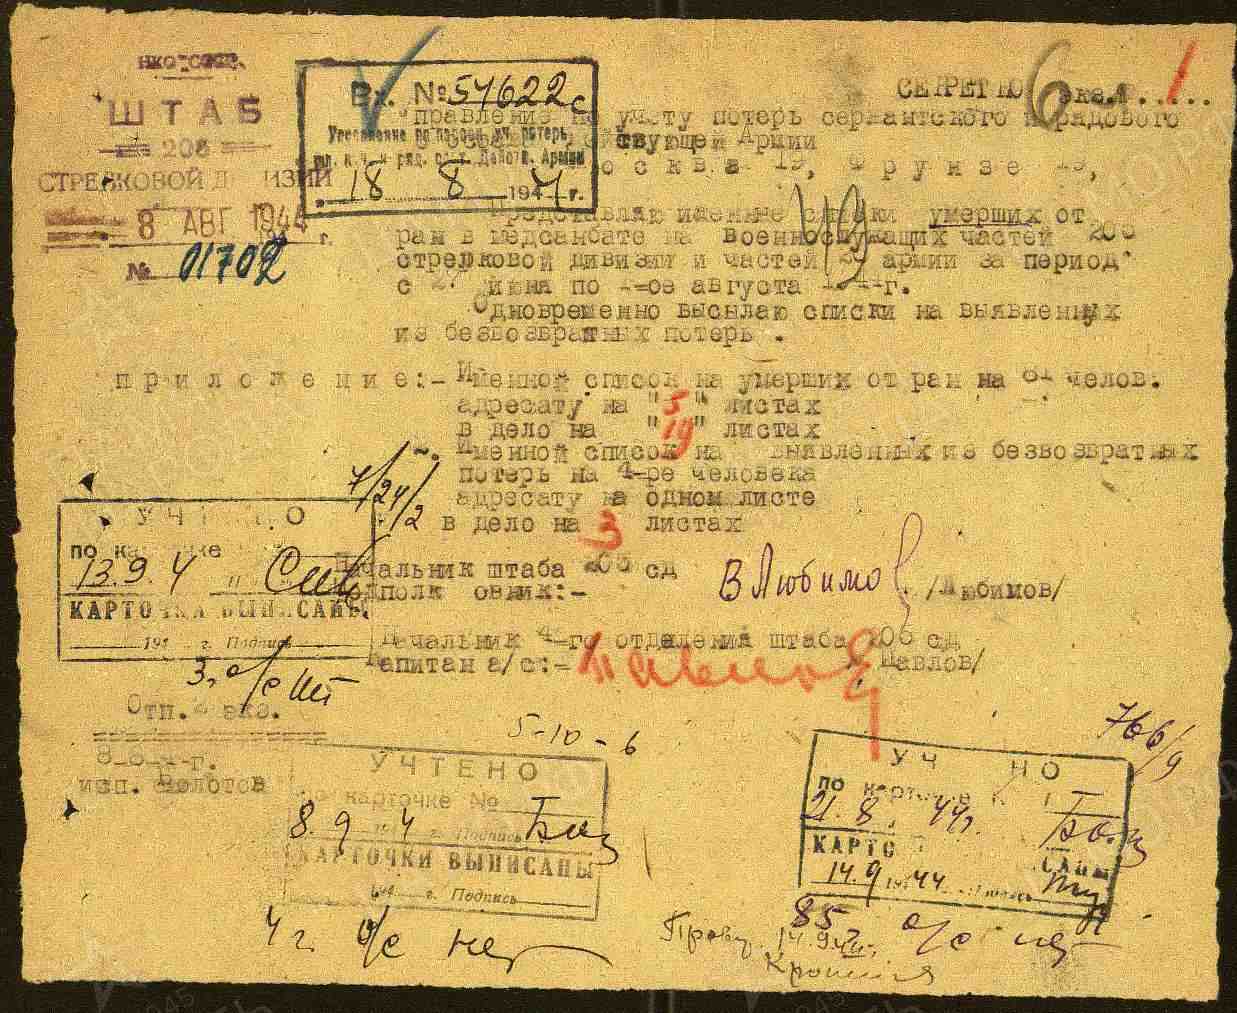 НКО-СССР.
ШТАБ
206
СТРЕЛКОВОЙ Д ИЗИИ
8 АВГ 1944 г.
№ 01702
Вх. № 54622с
Управление по персон. уч. потерь
и ряд. сост. Действ. Армии
18 8 1944 г.
СЕКРЕТНО экз. 1
правление по учету потерь сержантского и рядового
состава действующей Армии
осква 19, Фрунзе 19,
Представляю именные списки умерших от
ран в медсанбате на военнослужащих частей 206
стрелковой дивизии и частей армии за период
с июня по 4-ое августа г.
Одновременно высылаю списки на выявленных
из безвозвратных потерь.
приложение:- Именной список на умерших от ран на 81 челов.
адресату на "5" листах
в дело на "19" листах
Именной список на выявленных из безвозвратных
потерь на 4-ре человека
адресату на одном листе
в дело на 3 листах
7/24/2
УЧ О
по карточке
13.9.4
КАРТОЧКА ВЫПИСАН
194 г. Подпись
Начальник штаба 206 сд
подполковник:- ВЛюбимов /Любимов/
Начальник 4-го отделения штаба 206 сд
Капитан а/с:- Павлов Павлов/
Отп. 2 экз.
8-8-4-г.
исп. Болотов
5-10-6
766/9
УЧТЕНО
по карточке №
8.9 4 г. Подпись
КАРТОЧКИ ВЫПИСАНЫ
194 г. Подпись
УЧ НО
по карточке
21.8 44г.
КАРТО САНЫ
14.9 1944
85 о/с нет
4 г. о/с нет
Пров. 14.9.44г.